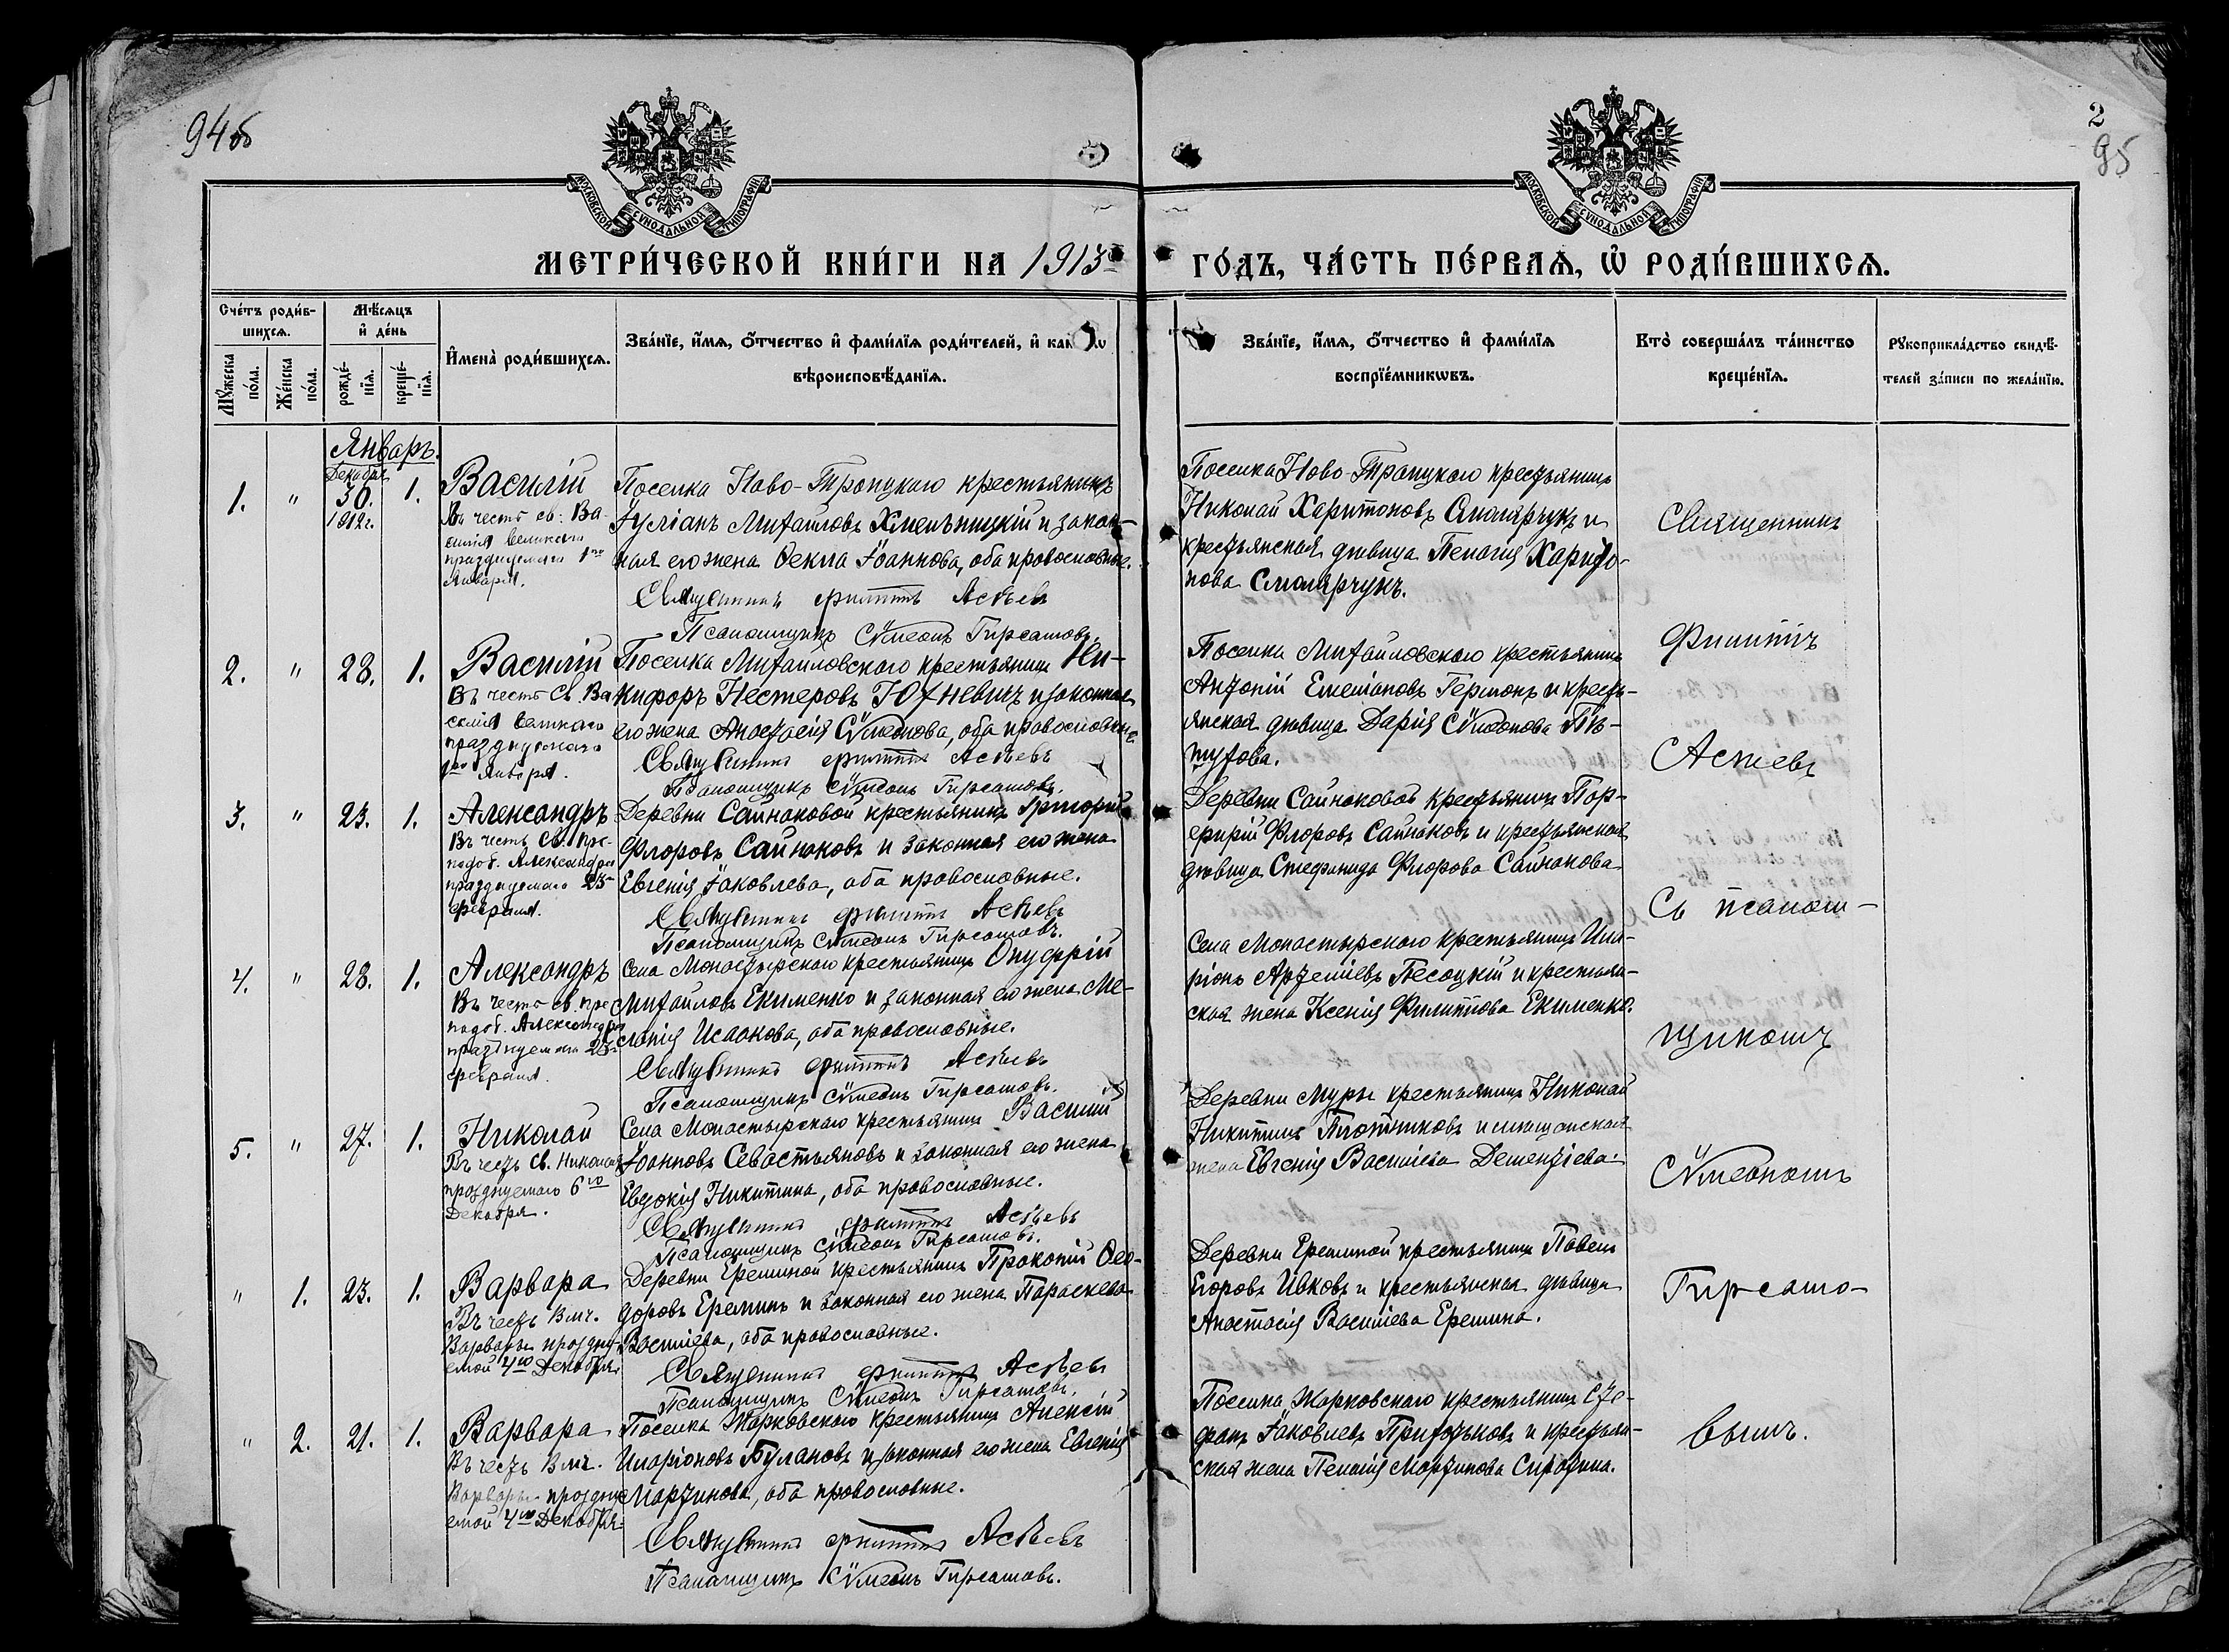 94об
2
95
МОСКОВСКОЙ СѴНОДАЛЬНОЙ ТИПОГРАФІИ
МОСКОВСКОЙ СѴНОДАЛЬНОЙ ТИПОГРАФІИ
МЕТРИ́ЧЕСКОЙ КНИ́ГИ НА 1913 ГО́ДЪ, ЧА́СТЬ ПЕ́РВАѦ, Ѡ҆ РОДИ́ВШИХСѦ.
Сче́тъ роди́в-
шихсѧ.
Мꙋ́жеска по́ла.
Же́нска по́ла.
Мѣ́сѧцъ
и҆ де́нь
рожде́-
нїѧ.
креще́-
нїѧ.
И҆мена̀ роди́вшихсѧ.
Зва́нїе, и҆́мѧ, ѻ҆́тчество и҆ фами́лїѧ роди́телей, и҆
вѣроисповѣ́данїѧ.
Зва́нїе, и҆́мѧ, ѻ҆́тчество и҆ фами́лїѧ
воспрїе́мникѡвъ.
Кто̀ соверша́лъ та́инство
креще́нїѧ.
Рꙋкоприкла́дство свидѣ́-
телей за́писи по жела́нїю.
Январь.
1. " Декабря 30. 1912г. 1.
Василій
Въ честь св. Ва-
силія великаго
празднуемаго 1го
Января.
Поселка Ново-Троицкаго крестьянинъ
Іуліанъ Михайловъ Хмельницкій и закон-
ная его жена Ѳекла Іоаннова, оба православные.
Священникъ Филиппъ Асѣевъ
Псаломщикъ Сѵмеонъ Гирсамовъ.
Поселка Ново-Троицкаго крестьянинъ
Николай Харитоновъ Смолярчукъ и
крестьянская дѣвица Пелагія Харито-
нова Смолярчукъ.
2. " 28. 1.
Василій
Въ честь Св. Ва
силія великаго
празднуемаго
1го Января.
Поселка Михайловскаго крестьянинъ Ни-
кифоръ Нестеровъ Юхневичъ и законная
его жена Анастасія Сѵмеонова, оба православные
Священникъ Филиппъ Асѣевъ
Псаломщикъ Сѵмеонъ Гирсамовъ.
Поселка Михайловскаго крестьянинъ
Антоній Емеліановъ Гермонъ и кресть-
янская дѣвица Дарія Сѵмеонова Пѣ-
тухова.
3. " 23. 1.
Александръ
Въ честь Св. Пре-
подоб. Александра
празднуемаго 23го
февраля.
Деревни Сайнаковой крестьянинъ Григорій
Флоровъ Сайнаковъ и законная его жена
Евгенія Іаковлева, оба православные.
Священникъ Филиппъ Асѣевъ
Псаломщикъ Сѵмеонъ Гирсамовъ.
Деревни Сайнаковой крестьянинъ Пор-
фирій Флоровъ Сайнаковъ и крестьянская
дѣвица Стефанида Флорова Сайнакова
4. " 28. 1.
Александръ
Въ честь св. пре
подоб. Александра
празднуемаго 23го
февраля.
Села Монастырскаго крестьянинъ Онуфрій
Михайловъ Екименко и законная его жена Ме-
ланія Исаакова, оба православные.
Священникъ Филиппъ Асѣевъ
Псаломщикъ Сѵмеонъ Гирсамовъ.
Села Монастырскаго крестьянинъ Ила-
ріонъ Артеміевъ Песоцкій и крестьян-
ская жена Ксенія Филиппова Екименко.
5. " 27. 1.
Николай
Въ честь св. Николая
празднуемаго 6го
Декабря.
Села Монастырскаго крестьянинъ Василій
Іоанновъ Севастьяновъ и законная его жена
Евдокія Никитина, оба православные.
Священникъ Филиппъ Асѣевъ
Псаломщикъ Сѵмеонъ Гирсамовъ.
Деревни Муры крестьянинъ Николай
Никитинъ Плотниковъ и мещанская
жена Евгенія Василіева Дементіева.
" 1. 23. 1.
Варвара
Въ честь Вмч.
Варвары праздну-
емой 4го Декабря
Деревни Ереминой крестьянинъ Прокопій Ѳео-
доровъ Ереминъ и законная его жена Параскева
Василіева, оба православные.
Священникъ Филиппъ Асѣевъ
Псаломщикъ Сѵмеонъ Гирсамовъ.
Деревни Ереминой крестьянинъ Павелъ
Егоровъ Ивковъ и крестьянская дѣвица
Анастасія Василіева Еремина.
" 2. 21. 1.
Варвара
Въ честь Вмч.
Варвары праздну
емой 4го Декабря
Поселка Жарковскаго крестьянинъ Алексій
Иларіоновъ Булановъ и законная его жена Евгенія
Мартинова, оба православные.
Священникъ Филиппъ Асѣевъ
Псаломщикъ Сѵмеонъ Гирсамовъ.
Поселка Жарковскаго крестьянинъ Сте-
фанъ Іаковлевъ Приходьковъ и крестьян-
ская жена Пелагія Мартинова Сиротина.
Священникъ
Филиппъ
Асѣевъ
Съ псалом-
щикомъ
Сѵмеономъ
Гирсамо-
вымъ.